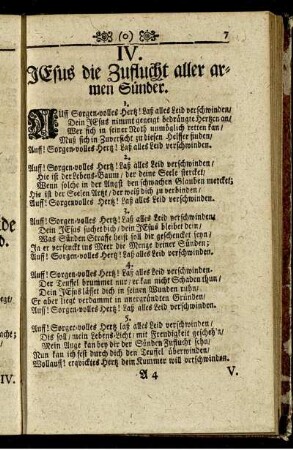 (o) 7
IV.
JEsus die Zuflucht aller ar-
men Sünder.
1.
Auff Sorgen-volles Hertz! Laß alles Leid verschwinden/
Dein JEsus nimmt geneigt bedrängte Hertzen an/
Wer sich in seiner Noth unmöglich retten kan/
Muß sich in Zuversicht zu diesen Helffer finden/
Auff! Sorgen-volles Hertz! Laß alles Leid verschwinden.
2.
Auff! Sorgen-volles Hertz! Laß alles Leid verschwinden/
Hie ist der Lebens-Baum/ der deine Seele stercket/
Wenn solche in der Angst den schwachen Glauben mercket;
Hie ist der Seelen Artzt/ der weiß dich zu verbinden/
Auff! Sorgen-volles Hertz! Laß alles Leid verschwinden.
3.
Auff! Sorgen-volles Hertz! Laß alles Leid verschwinden/
Dein JEsus suchet dich/ dein JEsus bleibet dein/
Was Sünden Straffe heist soll dir geschencket seyn/
In er versenckt ins Meer die Menge deiner Sünden;
Auff! Sorgen-volles Hertz! Laß alles Leid verschwinden.
Auff! Sorgen-volles Hertz! Laß alles Leid verschwinden.
Der Teuffel brummet nur/ er kan nicht Schaden thun/
Dein JEsus lässet dich in seinen Wunden ruhn/
Er aber liegt verdammt in unergründten Gründen/
Auff! Sorgen-volles Hertz! Laß alles Leid verschwinden/
5.
Auff! Sorgen-volles Hertz laß alles Leid verschwinden/
Diß soll/ mein Lebens-Licht/ mit Freudigkeit gescheh'n/
Mein Auge kan bey dir der Sünden Zuflucht sehn/
Nun kan ich fest durch dich den Teuffel überwinden/
Wollauff! erquicktes Hertz dein Kummer will verschwinden.
A 4 V.